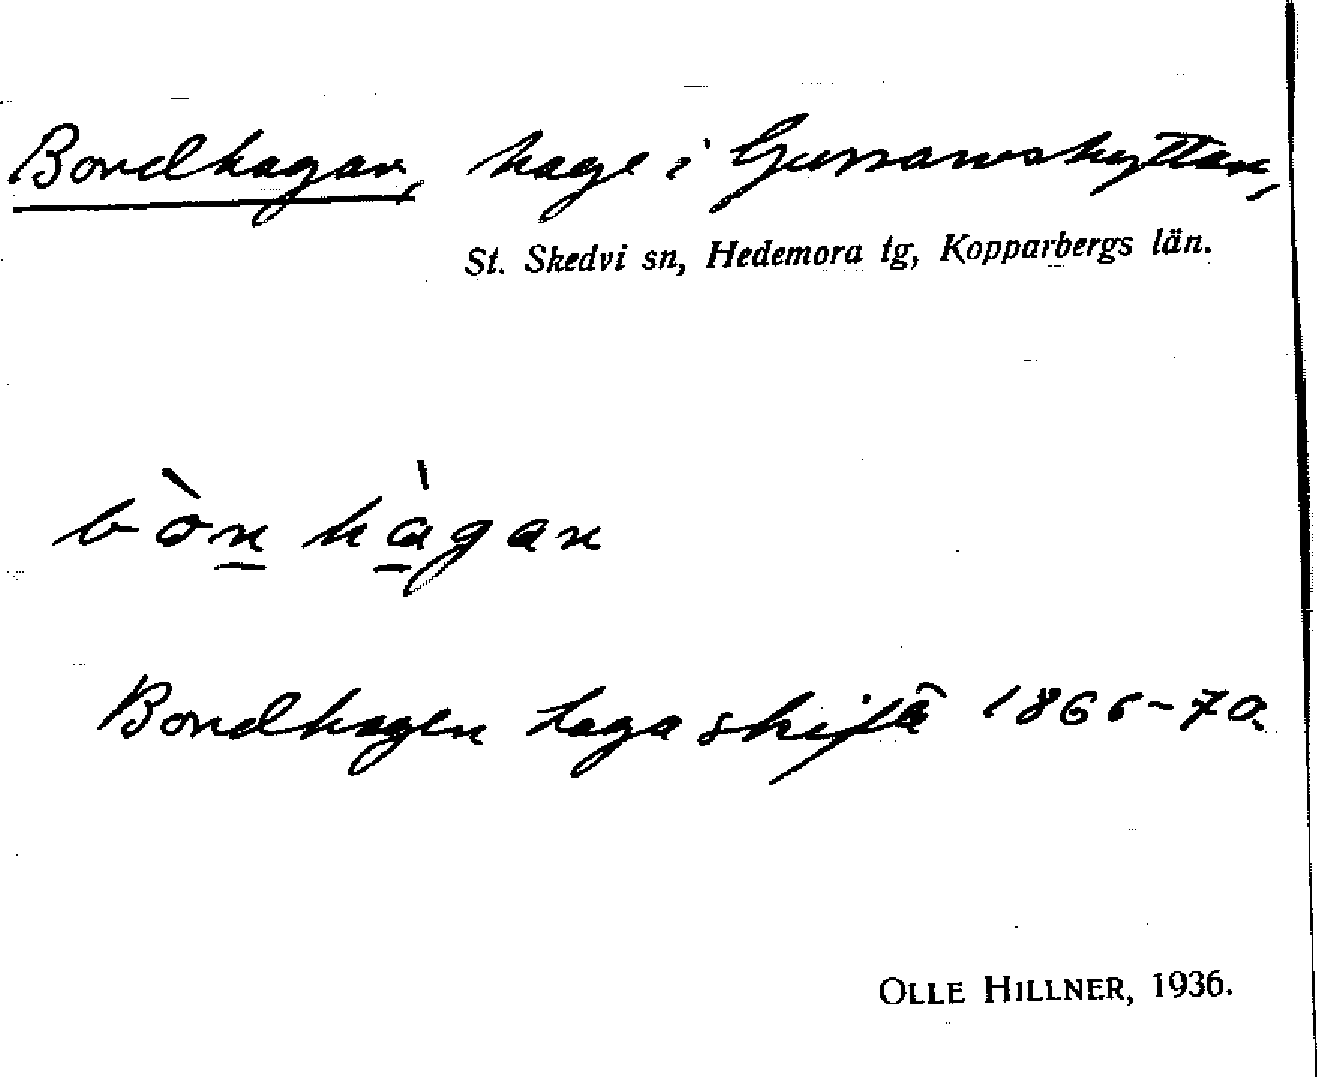 Bondhagan, hage i Gussarvshyttan,
St. Skedvi sn, Hedemora tg, Kopparbergs län.
bòn hàgan
Bondhagen laga skifte 1866-70
OLLE HILLNER, 1936.